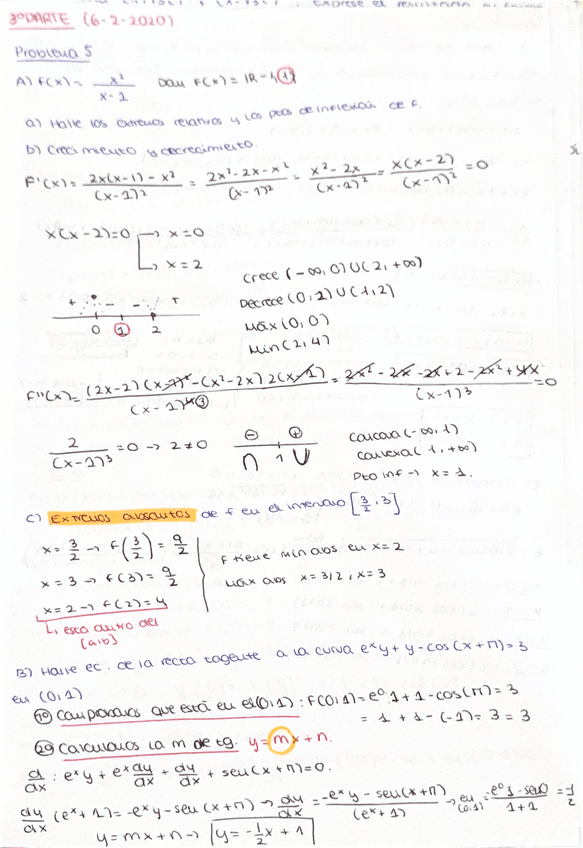 3ª PARTE (6-2-2020)
Problema 5
A) f(x) = x²/(x-1) Dom f(x) = ℝ - {1}
a) Halle los extremos relativos y los ptos de inflexión de f.
b) Crecimiento y decrecimiento.
f'(x) = (2x(x-1) - x²)/(x-1)² = (2x²-2x-x²)/(x-1)² = (x²-2x)/(x-1)² = x(x-2)/(x-1)² = 0
x(x-2)=0 → x=0
↳ x=2
Crece (-∞,0)∪(2,+∞)
Decrece (0,2)∪(1,2)
Máx (0,0)
Min (2,4)
+ - - +
0 1 2
f''(x) = ((2x-2)(x-1)² - (x²-2x) 2(x-1))/(x-1)⁴ ③ = (2x² - 2x - 2x + 2 - 2x² + 4x)/(x-1)³ = 0
2/(x-1)³ = 0 → 2≠0
⊖ ⊕
∩ 1 ∪
Concava (-∞,1)
Convexa (1,+∞)
Pto inf → x=1.
c) Extremos absolutos de f en el intervalo [3/2, 3]
x = 3/2 → f(3/2) = 9/2
x = 3 → f(3) = 9/2
x = 2 → f(2) = 4
↳ esta dentro del
[a,b]
f tiene min abs en x=2
Máx abs x=3/2, x=3
B) Halle ec. de la recta tagente a la curva eˣy + y - cos(x+π) = 3
en (0,1)
1º Comprobamos que está en el (0,1): f(0,1) = e⁰·1 + 1 - cos(π) = 3
= 1 + 1 - (-1) = 3 = 3
2º Calculamos la m de tg. y = mx + n.
d/dx : eˣy + eˣ dy/dx + dy/dx + sen(x+π) = 0.
dy/dx (eˣ+1) = -eˣy - sen(x+π) → dy/dx = (-eˣy - sen(x+π))/(eˣ+1) → en (0,1) = (-e⁰1 - sen0)/(1+1) = -1/2
y = mx + n → y = -1/2x + 1